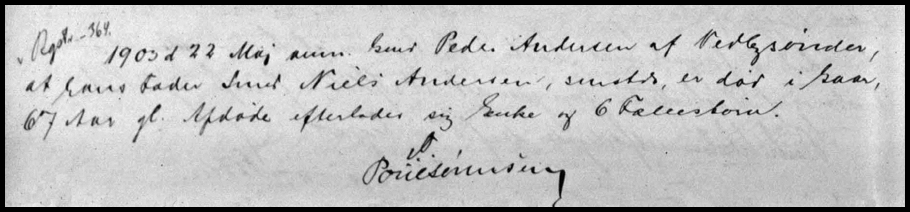 Rgstr. 364.
1903 d 22 Maj anm. Smed Peder Andersen af Vedbysønder,
at hans Fader Smed Niels Andersen, smstds, er død i Gaar,
67 Aar gl. Afdøde efterlader sig Enke og 6 Fællesbørn.